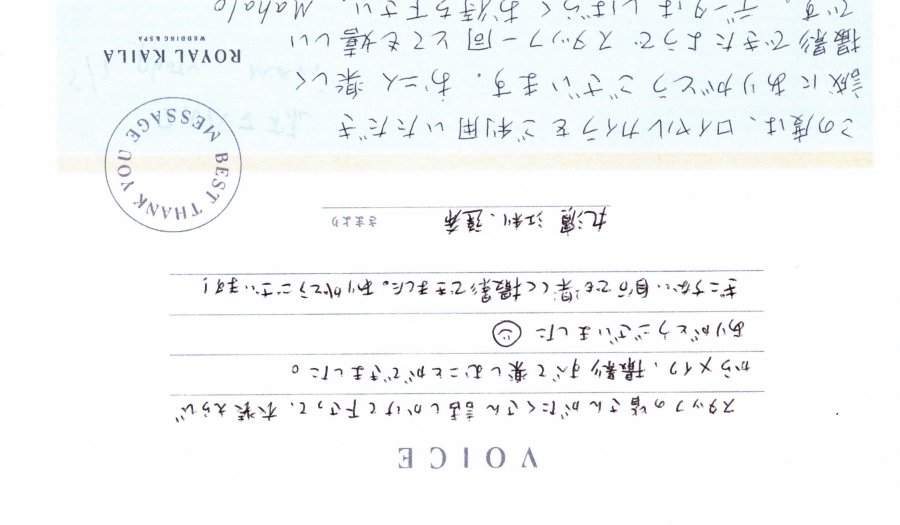 VOICE
スタッフの皆さんがたくさん話しかけて下さって、衣装えらび
からメイク、撮影すべて楽しむことができました。
ありがとうございました
ぎこちない自分でも楽しく撮影できました。ありがとうございます!
江利、 さまより
BEST THANK YOU MESSAGE
この度は、ロイヤルカイラをご利用いただき
誠にありがとうございます。お二人楽しく
撮影できたようでスタッフ一同とても嬉しい
です。データはしばらくお待ち下さい。Mahalo
ROYAL KAILA
WEDDING & SPA